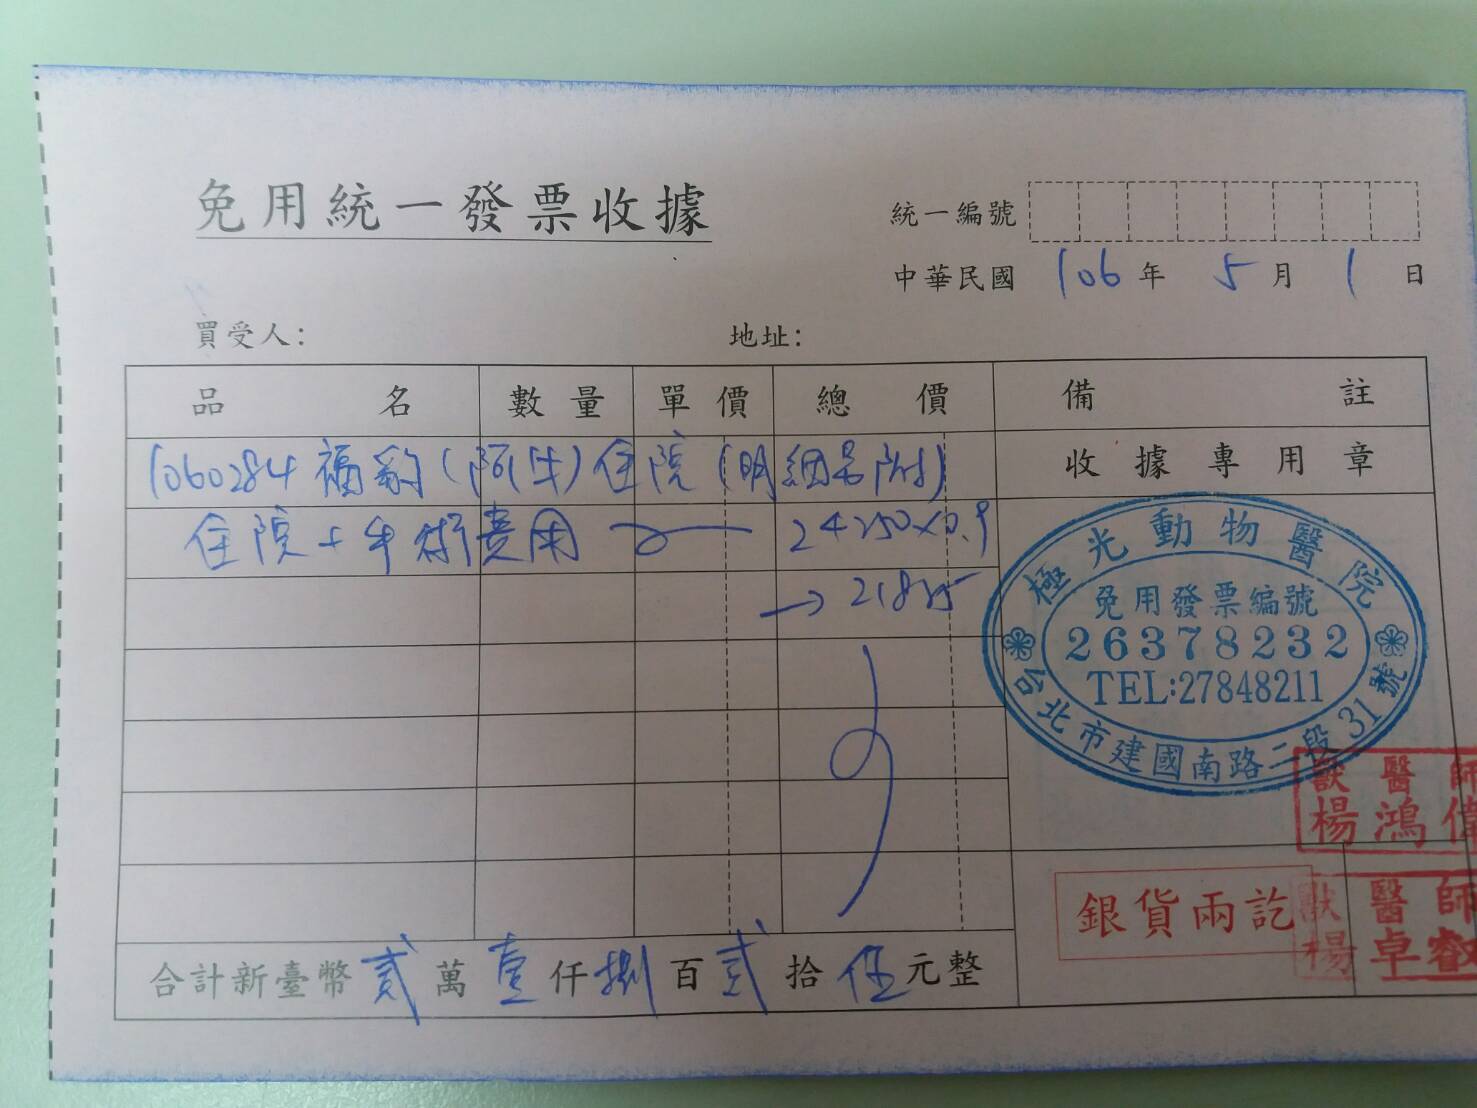 免用統一發票收據
統一編號
中華民國 106 年 5 月 1 日
買受人： 地址：
品名 數量 單價 總價 備註
1060284 福豹(阿牛)住院(明細另附) 收據專用章
住院+手術費用 24250×0.9
→ 21825
極光動物醫院
免用發票編號
26378232
TEL:27848211
台北市建國南路二段31號
獸醫師
楊鴻偉
銀貨兩訖
獸醫師
楊卓睿
合計新臺幣 貳 萬 壹 仟 捌 百 貳 拾 伍 元整